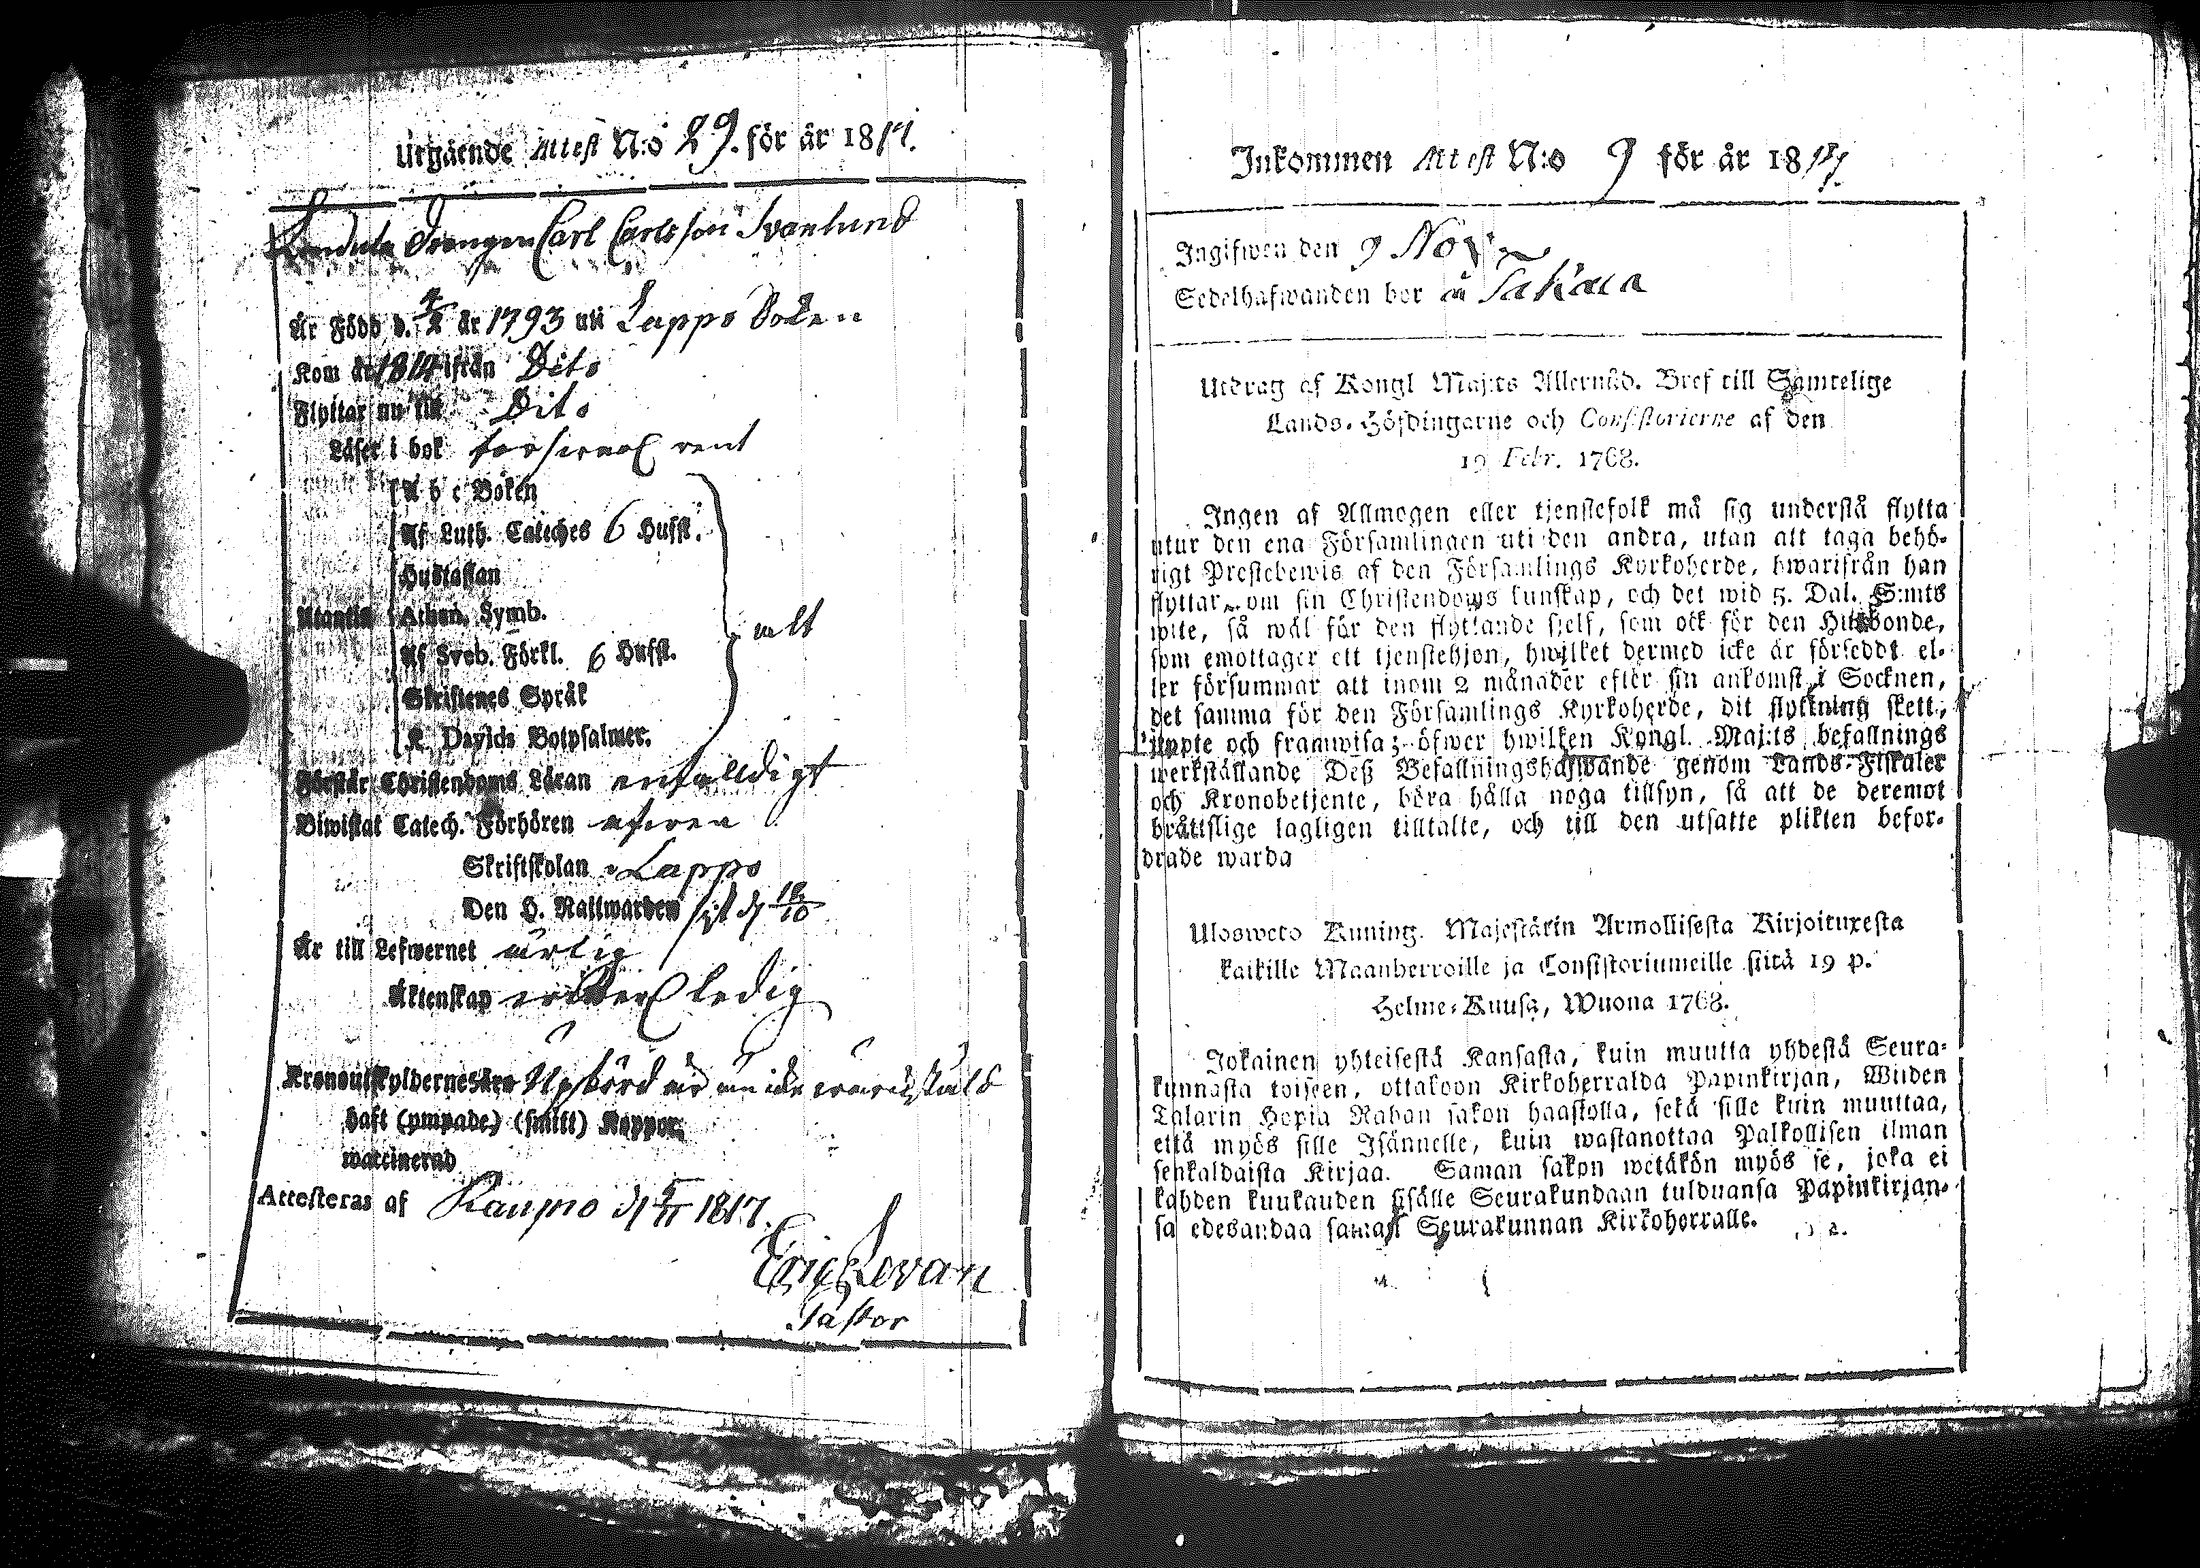 Utgående Attest N:o 29. för år 1817.
Drengen Carl Carlsson Svanlund
Är Född d. år 1793 uti Lappo Soken
Kom år 1814 ifrån Dito
Flyttar nu till Dito
Läser i bok försvarl. rent
A b c Boken
Af Luth. Cateches 6 Hufst.
Hustaflan
Utantill Athan. Symb.
Af Sveb. Förkl. 6 Hufst. alt
Skriftenes Språk
K. Davids Botpsalmer.
Förstår Christendoms Läran enfalldigt
Biwistat Catech. Förhören
Skriftskolan i Lappo
Den H. Nattwarden sist d. 12/10
Är till Lefwernet ärlig
Äktenskap ledig
Kronoutskyldernes
haft (ympade) (smitt) Koppor.
waccinerad
Attesteras af Raumo d. 5/11 1817.
Eric Levan
Pastor
Inkommen Attest N:o 9 för år 1817
Ingifwen den 9 Nov
Sedelhafwanden bor
Utdrag af Kongl Maj:ts Allernåd. Bref till Samtelige
Lands-Höfdingarne och Consistorierne af den
19 Febr. 1768.
Ingen af Allmogen eller tjenstefolk må sig understå flytta
utur den ena Församlingen uti den andra, utan att taga behö-
rigt Prestebewis af den Församlings Kyrkoherde, hwarifrån han
flyttar, om sin Christendoms kunskap, och det wid 5. Dal. S:mts
wite, så wäl för den flyttande sjelf, som ock för den Husbonde,
som emottager ett tjenstehjon, hwilket dermed icke är försedt el-
ler försummar att inom 2 månader efter sin ankomst i Socknen,
det samma för den Församlings Kyrkoherde, dit flyttning skett,
uppte och framwisa; öfwer hwilken Kongl. Maj:ts befallnings
werkställande Deß Befallningshafwande genom Lands-Fiskaler
och Kronobetjente, böra hålla noga tillsyn, så att de deremot
bråttslige lagligen tilltalte, och till den utsatte plikten befor-
drade warda
Ulosweto Kuning. Majestätin Armollisesta Kirjoituxesta
kaikille Maanherroille ja Consistoriumeille siitä 19 p.
Helme-Kuusa, Wuona 1768.
Jokainen yhteisestä Kansasta, kuin muutta yhdestä Seura-
kunnasta toiseen, ottakoon Kirkoherralda Papinkirjan, Wiiden
Talarin Hopia Rahan sakon haastolla, sekä sille kuin muuttaa,
että myös sille Isännelle, kuin wastanottaa Palkollisen ilman
senkaldaista Kirjaa. Saman sakon wetäkön myös se, joka ei
kahden kuukauden sisälle Seurakundaan tulduansa Papinkirjan-
sa edesandaa saman Seurakunnan Kirkoherralle.